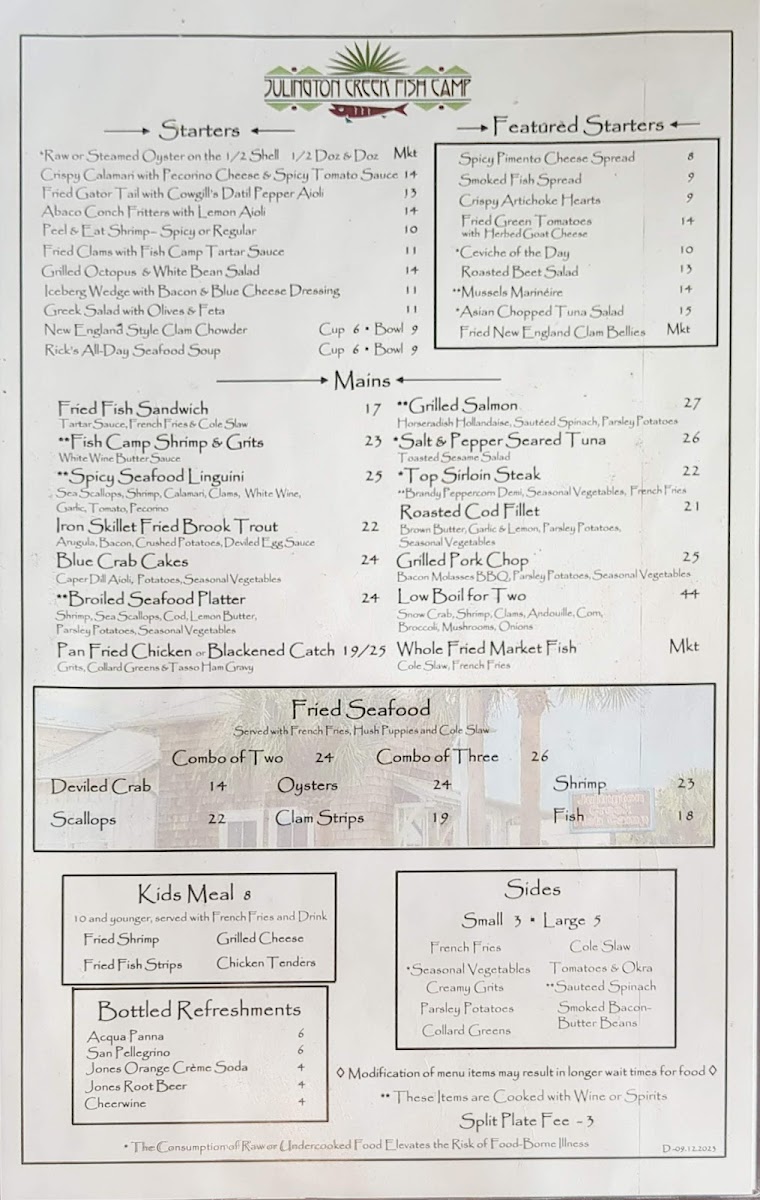 JULINGTON CREEK FISH CAMP
Starters
*Raw or Steamed Oyster on the 1/2 Shell 1/2 Doz & Doz Mkt
Crispy Calamari with Pecorino Cheese & Spicy Tomato Sauce 14
Fried Gator Tail with Cowgill's Datil Pepper Aioli 13
Abaco Conch Fritters with Lemon Aioli 14
Peel & Eat Shrimp- Spicy or Regular 10
Fried Clams with Fish Camp Tartar Sauce 11
Grilled Octopus & White Bean Salad 14
Iceberg Wedge with Bacon & Blue Cheese Dressing 11
Greek Salad with Olives & Feta 11
New England Style Clam Chowder Cup 6 • Bowl 9
Rick's All-Day Seafood Soup Cup 6 • Bowl 9
Featured Starters
Spicy Pimento Cheese Spread 8
Smoked Fish Spread 9
Crispy Artichoke Hearts 9
Fried Green Tomatoes 14
with Herbed Goat Cheese
*Ceviche of the Day 10
Roasted Beet Salad 13
**Mussels Marinéire 14
*Asian Chopped Tuna Salad 15
Fried New England Clam Bellies Mkt
Mains
Fried Fish Sandwich 17
Tartar Sauce, French Fries & Cole Slaw
**Fish Camp Shrimp & Grits 23
White Wine Butter Sauce
**Spicy Seafood Linguini 25
Sea Scallops, Shrimp, Calamari, Clams, White Wine,
Garlic, Tomato, Pecorino
Iron Skillet Fried Brook Trout 22
Arugula, Bacon, Crushed Potatoes, Deviled Egg Sauce
Blue Crab Cakes 24
Caper Dill Aioli, Potatoes, Seasonal Vegetables
**Broiled Seafood Platter 24
Shrimp, Sea Scallops, Cod, Lemon Butter,
Parsley Potatoes, Seasonal Vegetables
Pan Fried Chicken or Blackened Catch 19/25
Grits, Collard Greens & Tasso Ham Gravy
**Grilled Salmon 27
Horseradish Hollandaise, Sautéed Spinach, Parsley Potatoes
*Salt & Pepper Seared Tuna 26
Toasted Sesame Salad
*Top Sirloin Steak 22
**Brandy Peppercorn Demi, Seasonal Vegetables, French Fries
Roasted Cod Fillet 21
Brown Butter, Garlic & Lemon, Parsley Potatoes,
Seasonal Vegetables
Grilled Pork Chop 25
Bacon Molasses BBQ, Parsley Potatoes, Seasonal Vegetables
Low Boil for Two 44
Snow Crab, Shrimp, Clams, Andouille, Corn,
Broccoli, Mushrooms, Onions
Whole Fried Market Fish Mkt
Cole Slaw, French Fries
Fried Seafood
Served with French Fries, Hush Puppies and Cole Slaw
Combo of Two 24 Combo of Three 26
Deviled Crab 14 Oysters 24 Shrimp 23
Scallops 22 Clam Strips 19 Fish 18
Kids Meal 8
10 and younger, served with French Fries and Drink
Fried Shrimp Grilled Cheese
Fried Fish Strips Chicken Tenders
Bottled Refreshments
Acqua Panna 6
San Pellegrino 6
Jones Orange Crème Soda 4
Jones Root Beer 4
Cheerwine 4
Sides
Small 3 • Large 5
French Fries Cole Slaw
*Seasonal Vegetables Tomatoes & Okra
Creamy Grits **Sauteed Spinach
Parsley Potatoes Smoked Bacon-
Butter Beans
Collard Greens
◊ Modification of menu items may result in longer wait times for food ◊
** These Items are Cooked with Wine or Spirits
Split Plate Fee - 3
* The Consumption of Raw or Undercooked Food Elevates the Risk of Food-Borne Illness
D-09.12.2023